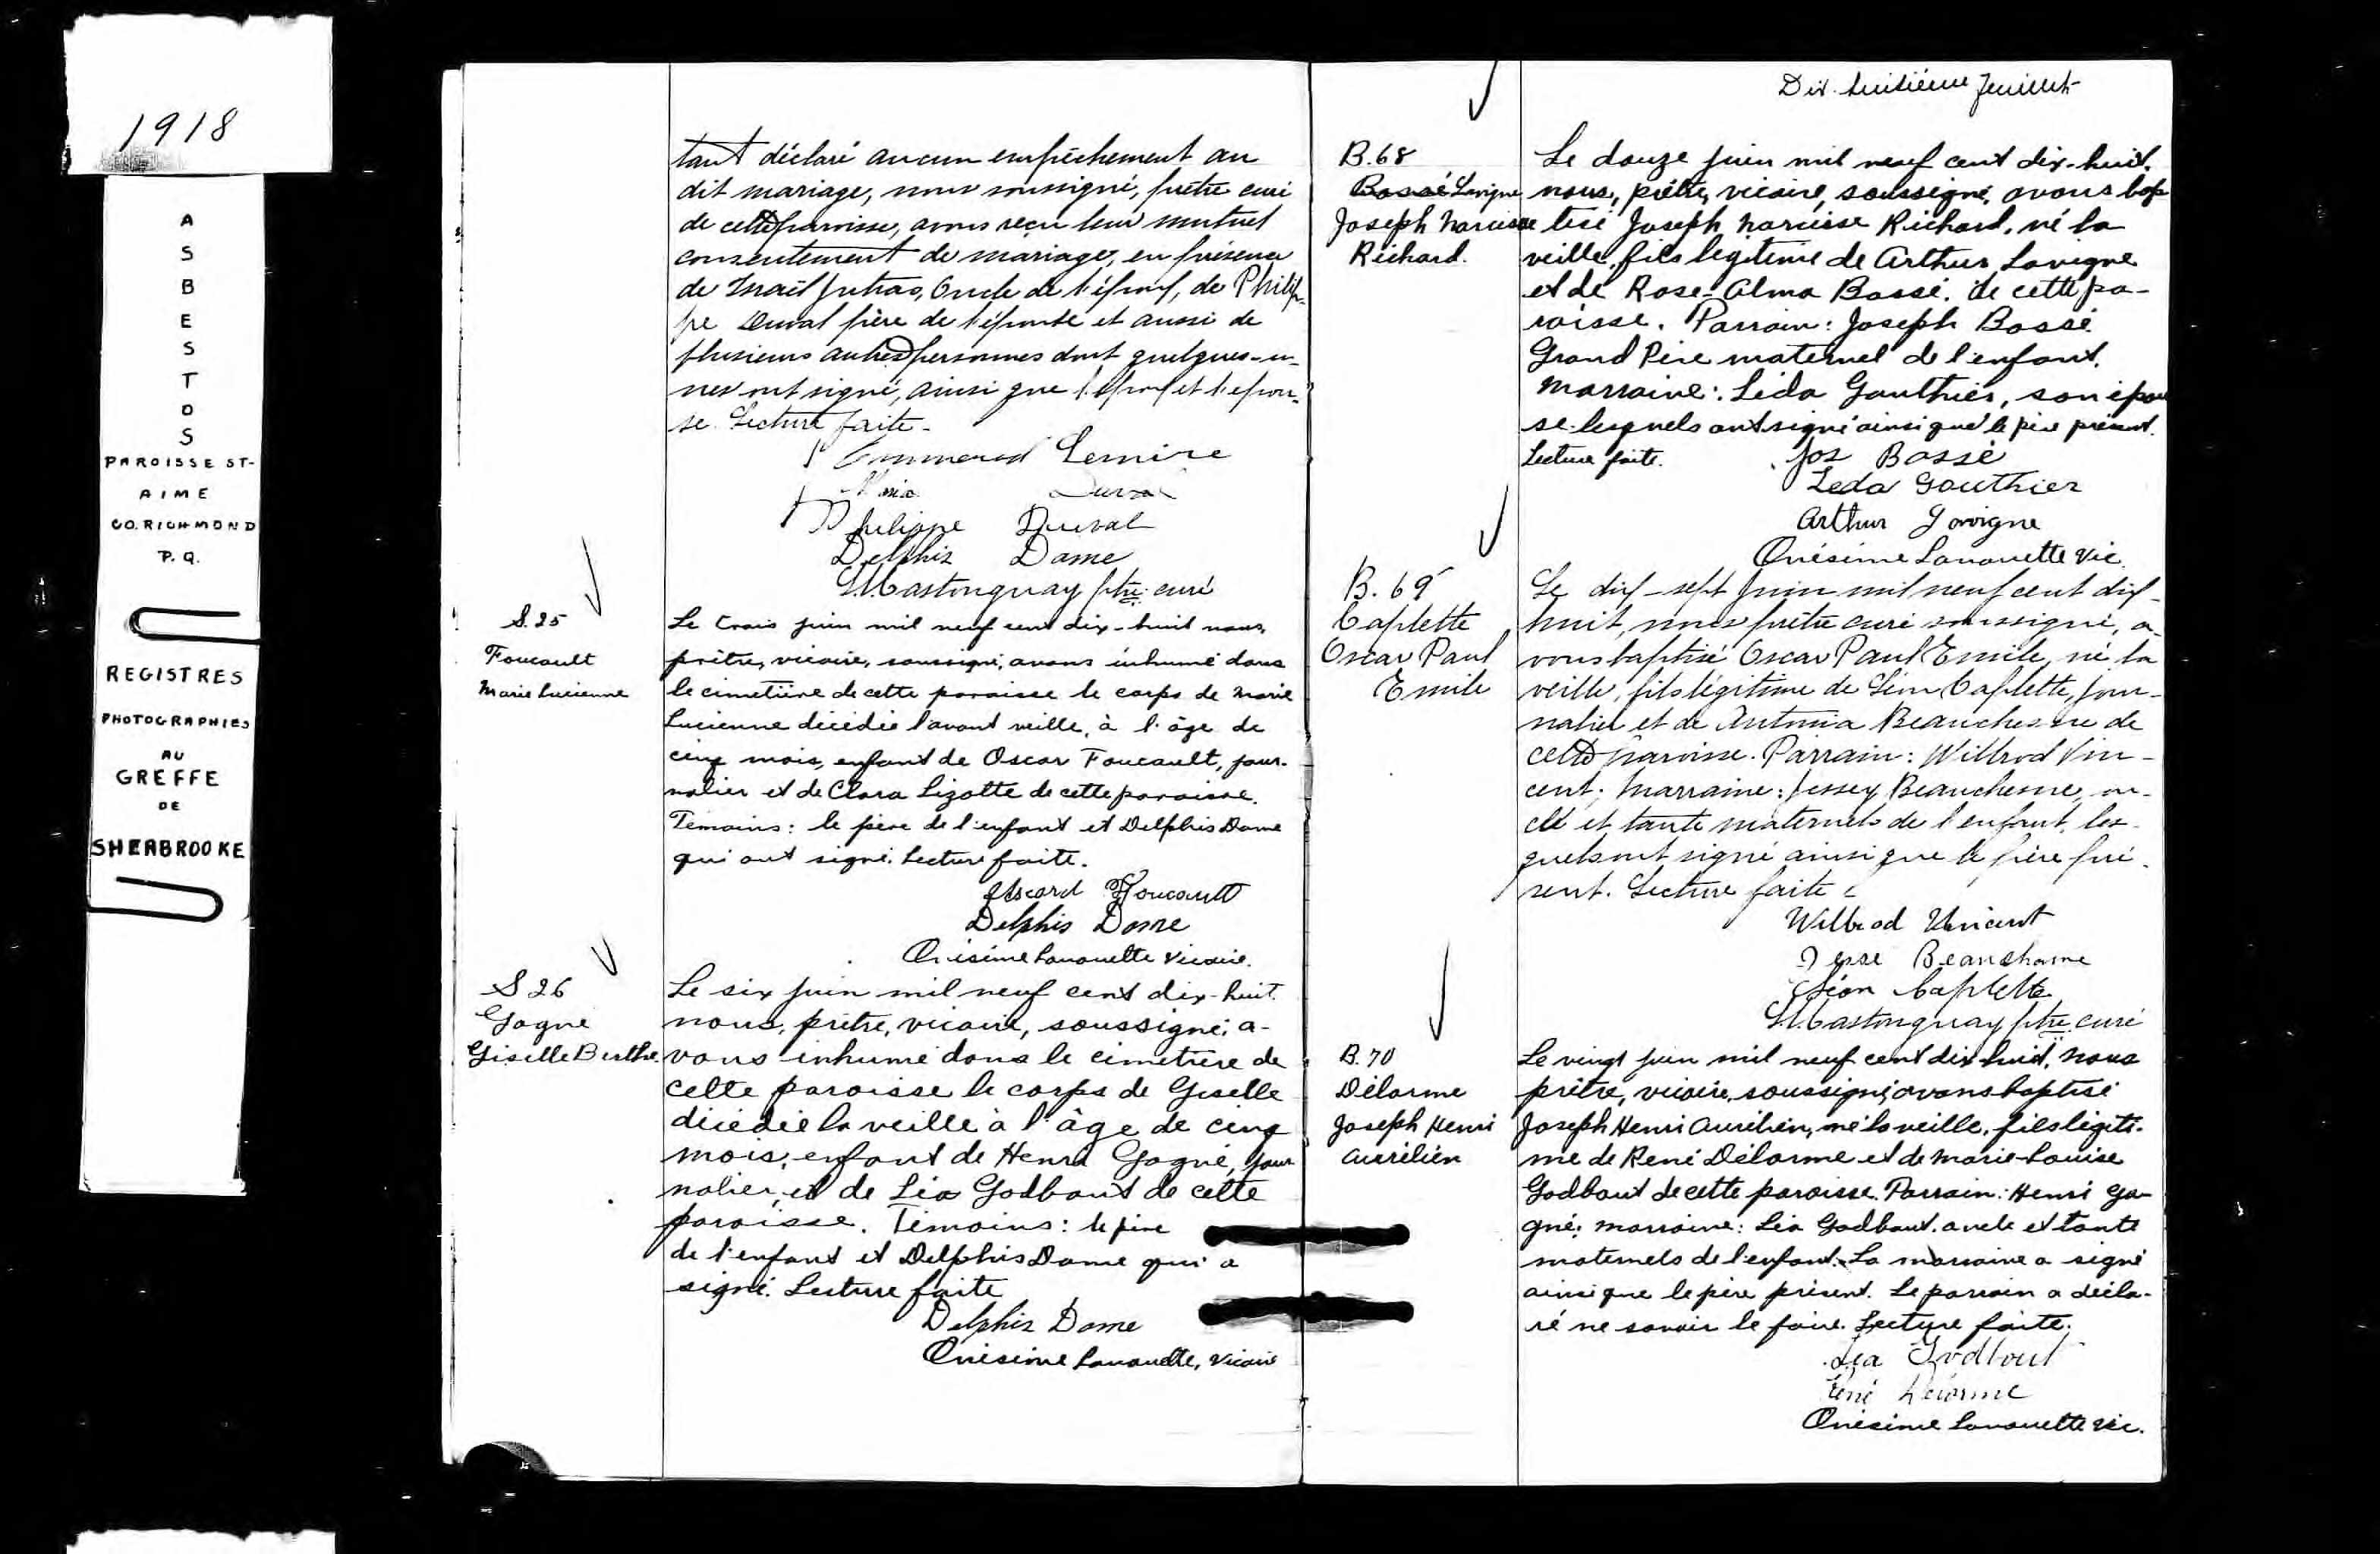 1918
A
S
B
E
S
T
O
S
PAROISSE ST-
AIME
CO. RICHMOND
P.Q.
REGISTRES
PHOTOGRAPHIES
AU
GREFFE
DE
SHERBROOKE
tant déclaré aucun empêchement au
dit mariage, nous soussigné, prêtre curé
de cette paroisse, avons reçu leur mutuel
consentement de mariage, en présence
de Jutras, Oncle de l'époux, de Philip-
pe Duval père de l'épouse et aussi de
plusieurs autres personnes dont quelques-u-
nes ont signé, ainsi que l'époux et l'épou-
se. Lecture faite.
Lemire
Duval
Philippe Duval
Delphis Dame
Castonguay ptre curé
S. 25
Foucault
Marie Lucienne
Le trois juin mil neuf cent dix-huit nous,
prêtre, vicaire, soussigné, avons inhumé dans
le cimetière de cette paroisse le corps de Marie
Lucienne décédée l'avant veille, à l'âge de
cinq mois, enfant de Oscar Foucault, jour-
nalier et de Clara Lizotte de cette paroisse.
Témoins: le père de l'enfant et Delphis Dame
qui ont signé. Lecture faite.
Foucault
Delphis Dame
Onésime Lanouette Vicaire.
S 26
Gagné
Giselle Berthe
Le six juin mil neuf cent dix-huit.
nous, prêtre, vicaire, soussigné, a-
vons inhumé dans le cimetière de
cette paroisse le corps de Giselle
décédée la veille à l'âge de cinq
mois, enfant de Henri Gagné, jour
nalier, et de Léa Godbout de cette
paroisse. Témoins: le père
de l'enfant et Delphis Dame qui a
signé. Lecture faite
Delphis Dame
Onésime Lanouette, Vicaire
Dix-huitième feuillet
B. 68
Bossé Lavigne
Joseph Narcisse
Richard.
Le douze juin mil neuf cent dix-huit.
nous, prêtre, vicaire, soussigné, avons bap
tisé Joseph Narcisse Richard, né la
veille, fils légitime de Arthur Lavigne
et de Rose-Alma Bossé. de cette pa-
roisse. Parrain: Joseph Bossé
Grand Père maternel de l'enfant.
Marraine: Léda Gauthier, son épou
se lesquels ont signé ainsi que le père présent.
Lecture faite.
Jos Bossé
Leda Gauthier
Arthur Lavigne
Onésime Lanouette Vic.
B. 69
Caplette
Oscar Paul
Emile
Le dix-sept juin mil neuf cent dix-
huit, nous prêtre curé soussigné, a-
vons baptisé Oscar Paul Emile, né la
veille, fils légitime de Léon Caplette, jour-
nalier et de Antonia Beauchesne de
cette paroisse. Parrain: Wilbrod Vin-
cent; Marraine: Jessey Beauchesne, on-
cle et tante maternels de l'enfant, les-
quels ont signé ainsi que le père pré-
sent. Lecture faite
Wilbrod Vincent
Jesse Beauchesne
Léon Caplette
Castonguay ptre curé
B. 70
Délorme
Joseph Henri
Aurélien
Le vingt juin mil neuf cent dix-huit, nous
prêtre, vicaire, soussigné, avons baptisé
Joseph Henri Aurélien, né la veille, fils légiti-
me de René Délorme et de Marie-Louise
Godbout de cette paroisse. Parrain: Henri Ga-
gné; marraine: Léa Godbout. oncle et tante
maternels de l'enfant. La marraine a signé
ainsi que le père présent. Le parrain a décla-
ré ne savoir le faire. Lecture faite.
Léa Godbout
René Delorme
Onésime Lanouette Vic.